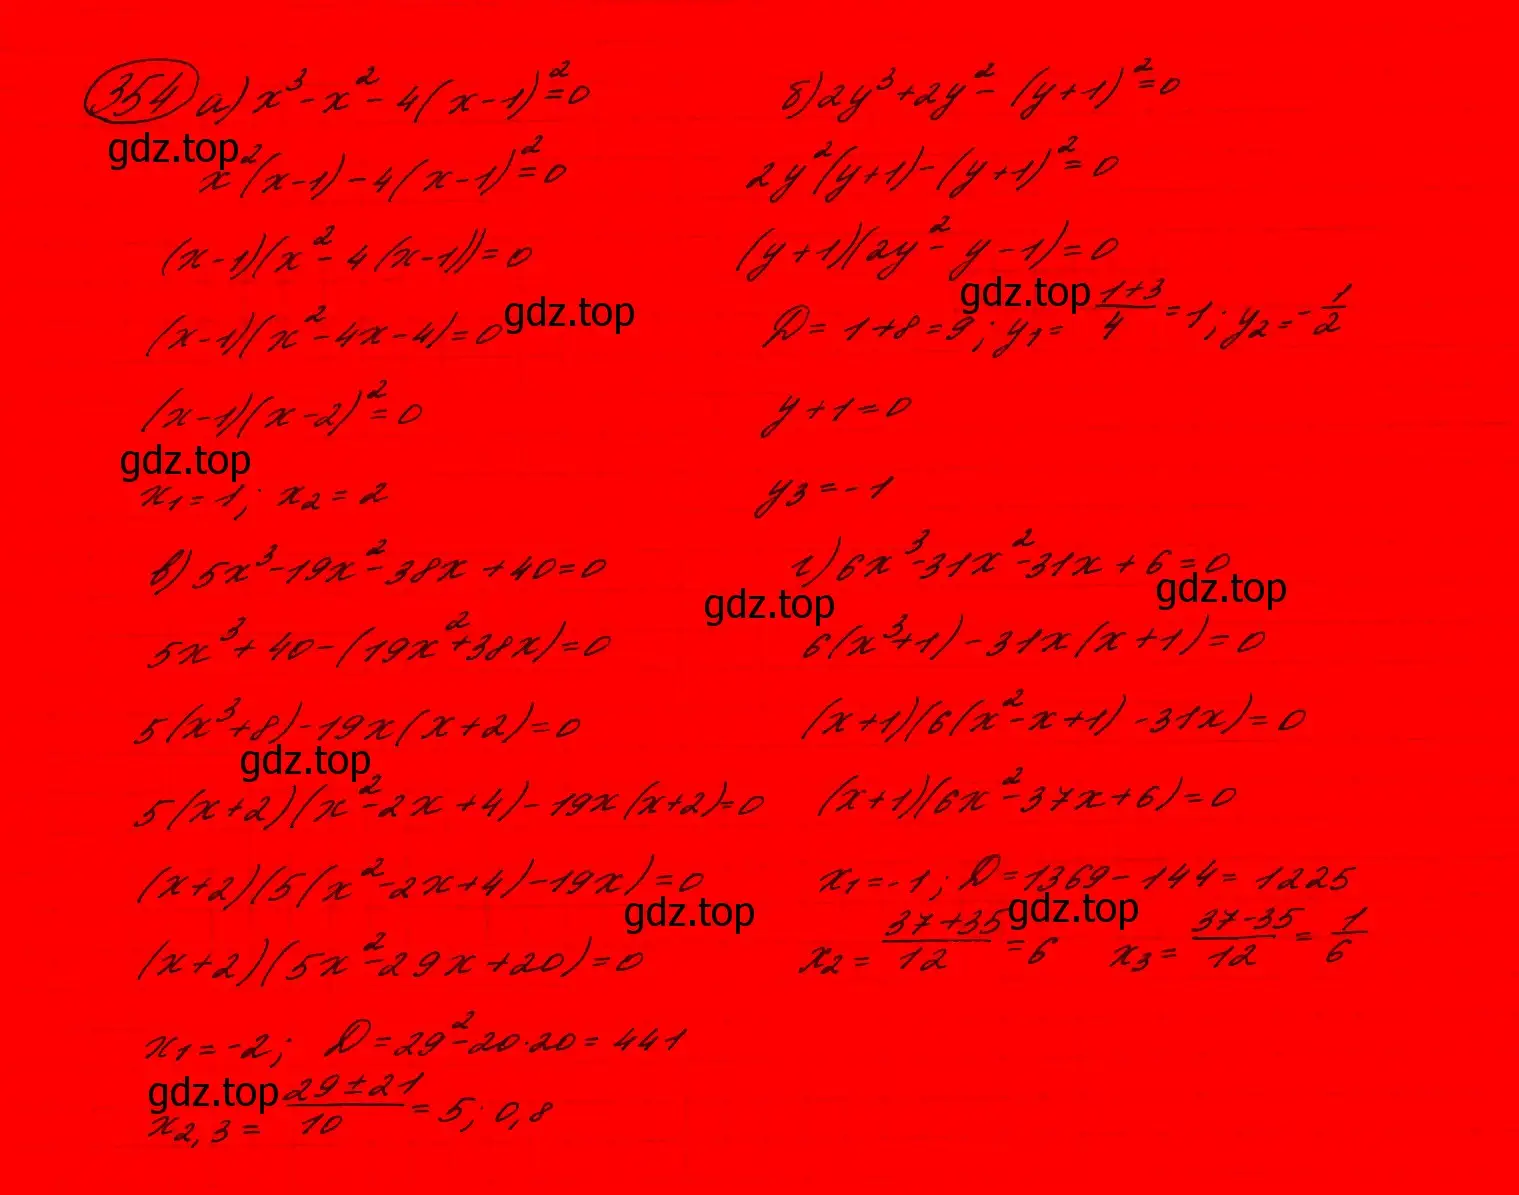 354 а) x³ - x² - 4(x-1)² = 0
gdz.top
x²(x-1) - 4(x-1)² = 0
(x-1)(x² - 4(x-1)) = 0
gdz.top
(x-1)(x² - 4x - 4) = 0
(x-1)(x-2)² = 0
gdz.top
x₁ = 1; x₂ = 2
б) 2y³ + 2y² - (y+1)² = 0
2y²(y+1) - (y+1)² = 0
(y+1)(2y² - y - 1) = 0
gdz.top
D = 1+8 = 9; y₁ = (1+3)/4 = 1; y₂ = -1/2
y+1 = 0
y₃ = -1
в) 5x³ - 19x² - 38x + 40 = 0
gdz.top
5x³ + 40 - (19x² + 38x) = 0
5(x³+8) - 19x(x+2) = 0
gdz.top
5(x+2)(x² - 2x + 4) - 19x(x+2) = 0
(x+2)(5(x² - 2x + 4) - 19x) = 0
gdz.top
(x+2)(5x² - 29x + 20) = 0
x₁ = -2; D = 29² - 20·20 = 441
gdz.top
x₂,₃ = (29 ± 21)/10 = 5; 0,8
г) 6x³ - 31x² - 31x + 6 = 0
gdz.top
6(x³+1) - 31x(x+1) = 0
(x+1)(6(x² - x + 1) - 31x) = 0
(x+1)(6x² - 37x + 6) = 0
x₁ = -1; D = 1369 - 144 = 1225
gdz.top
x₂ = (37+35)/12 = 6 x₃ = (37-35)/12 = 1/6